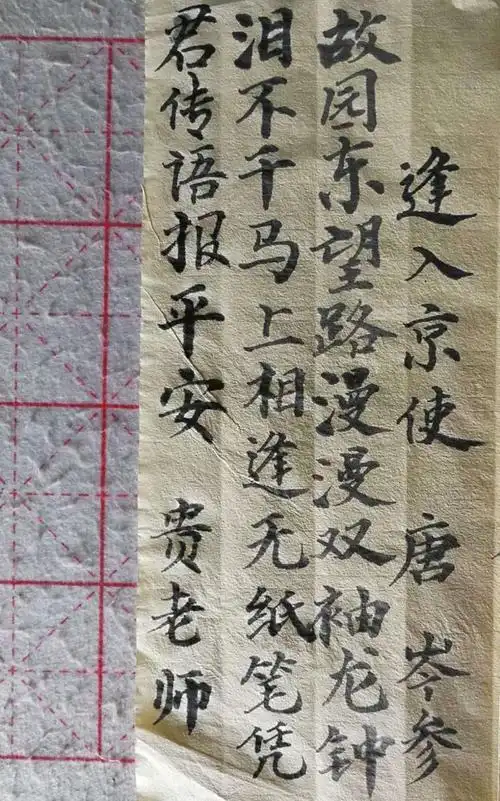 逢入京使 唐 岑参
故园东望路漫漫双袖龙钟
泪不干马上相逢无纸笔凭
君传语报平安 贵老师